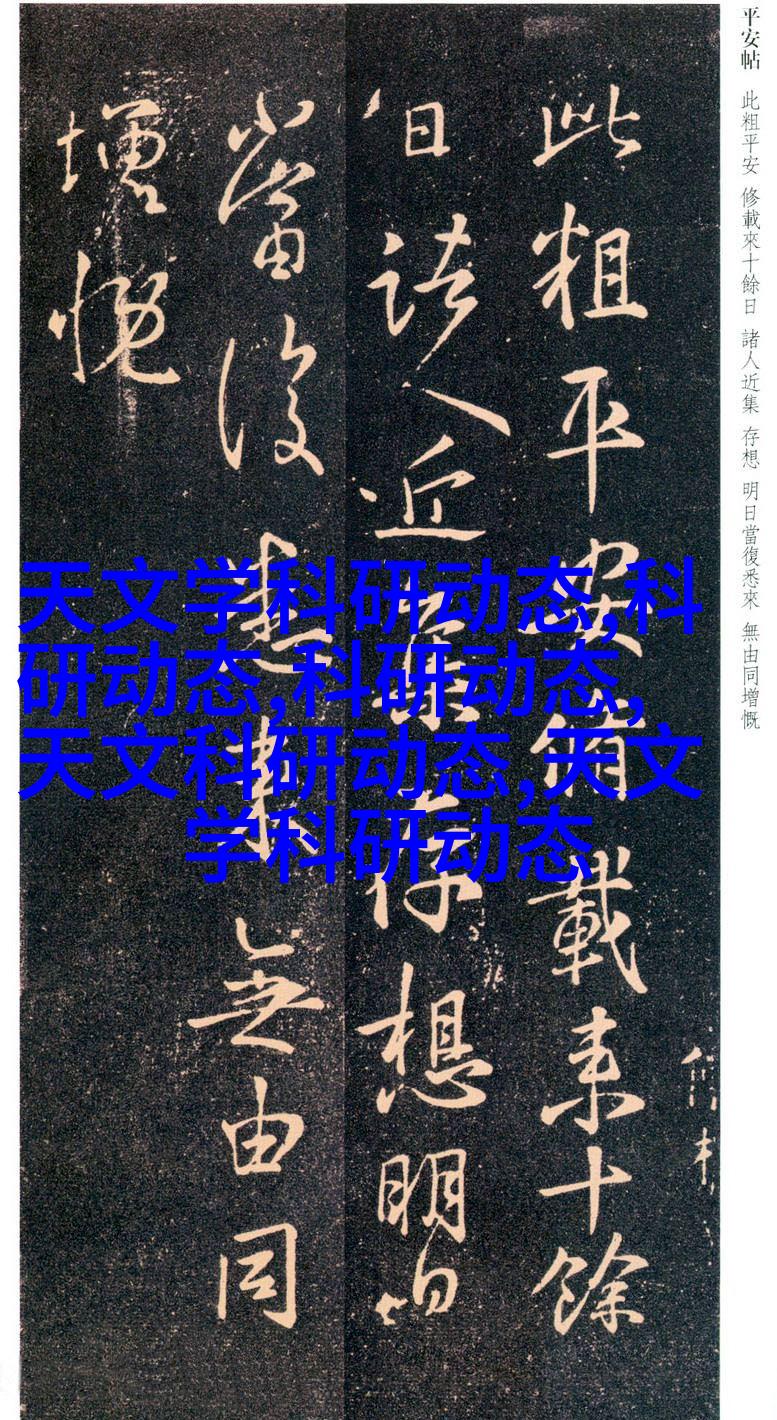 平安帖 此粗平安 修載來十餘日 諸人近集 存想 明日當復悉來 無由同增慨
此粗平安脩載来十餘
日諸人近集存想明日
當復悉來無由同
增慨
天文学科研动态,科
研动态,科研动态,
天文科研动态,天文
学科研动态